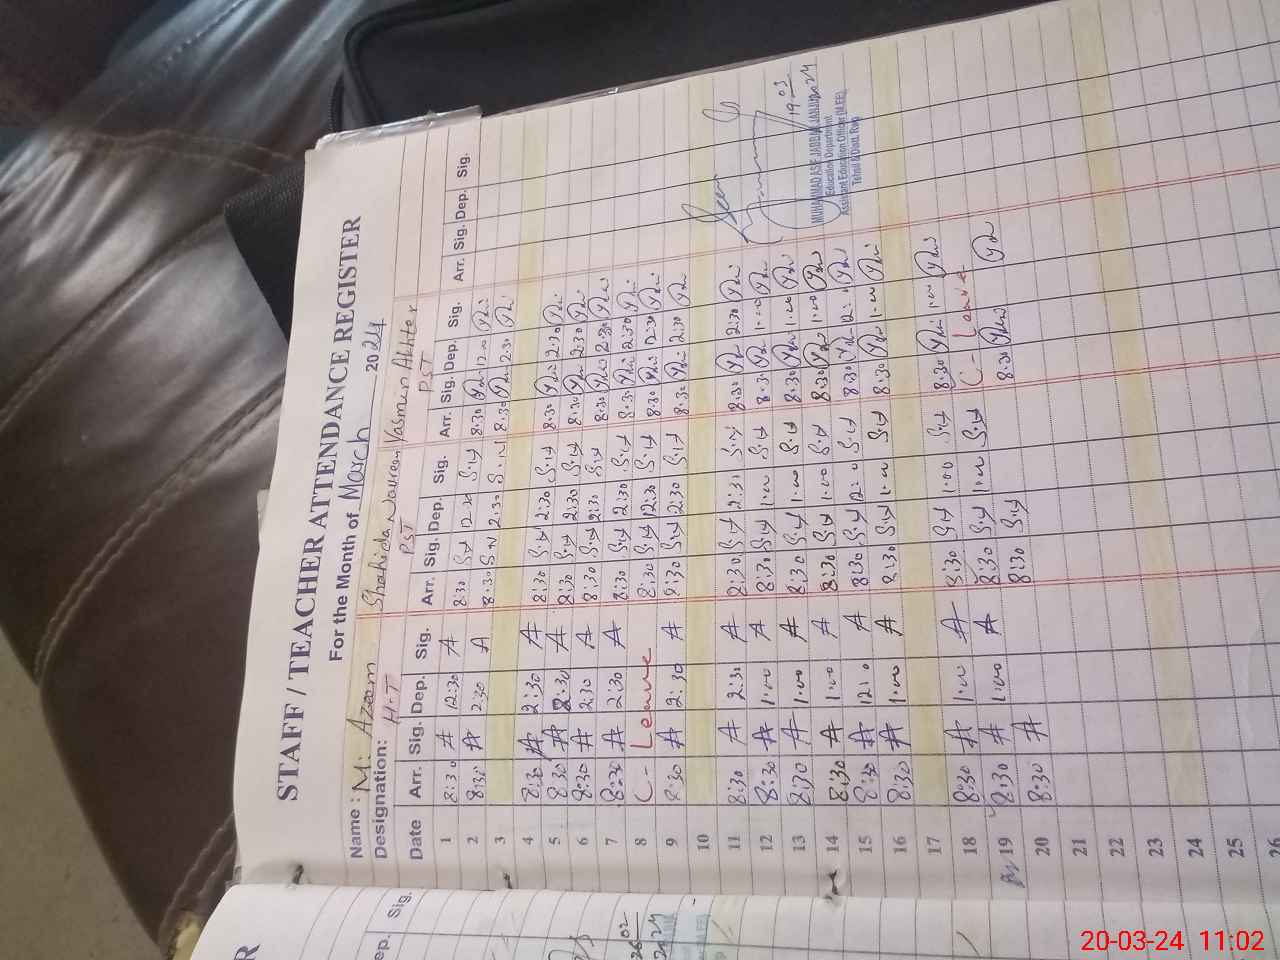 STAFF / TEACHER ATTENDANCE REGISTER
For the Month of March 2024
Name : M: Azeem Shahida Nasreen Yasmin Akhter
Designation: H.T PST PST
Date Arr. Sig. Dep. Sig. Arr. Sig. Dep. Sig. Arr. Sig. Dep. Sig. Arr. Sig. Dep. Sig.
1 8:30 A 12:30 A 8:30 S.N 12.30 S.N 8:30 12.00
2 8:30 A 2:30 A 8:30 S.N 2.30 S.N 8:30 2.30
3
4 8:30 A 2:30 A 8:30 S.N 2:30 S.N 8:30 2:30
5 8:30 A 2:30 A 8:30 S.N 2:30 S.N 8:30 2:30
6 8:30 A 2:30 A 8:30 S.N 2:30 S.N 8:30 2:30
7 8:30 A 2:30 A 8:30 S.N 2:30 S.N 8:30 2:30
8 C- Leave 8:30 S.N 12:30 S.N 8:30 12:30
9 8:30 A 2:30 A 8:30 S.N 2:30 S.N 8:30 2:30
10
11 8:30 A 2:30 A 8:30 S.N 2:30 S.N 8:30 2:30
12 8:30 A 1:00 A 8:30 S.N 1:00 S.N 8:30 1:00
13 8:30 A 1:00 A 8:30 S.N 1:00 S.N 8:30 1:00
14 8:30 A 1:00 A 8:30 S.N 1:00 S.N 8:30 1:00
15 8:30 A 12:0 A 8:30 S.N 12:0 S.N 8:30 12:
16 8:30 A 1:00 A 8:30 S.N 1:00 S.N 8:30 1:00
17
18 8:30 A 1:00 A 8:30 S.N 1:00 S.N 8:30 1:00
19 8:30 A 1:00 A 8:30 S.N 1:00 S.N C- Leave
20 8:30 A 8:30 S.N 8:30
21
22
23
24
25
26
19 03
2024
MUHAMMAD ASIF JABBAR JANJUA
Education Department
Assistant Education Officer (M.EE)
Tehsil & Distt. Rwp
R
ep. Sig.
26 02
2024
20-03-24 11:02